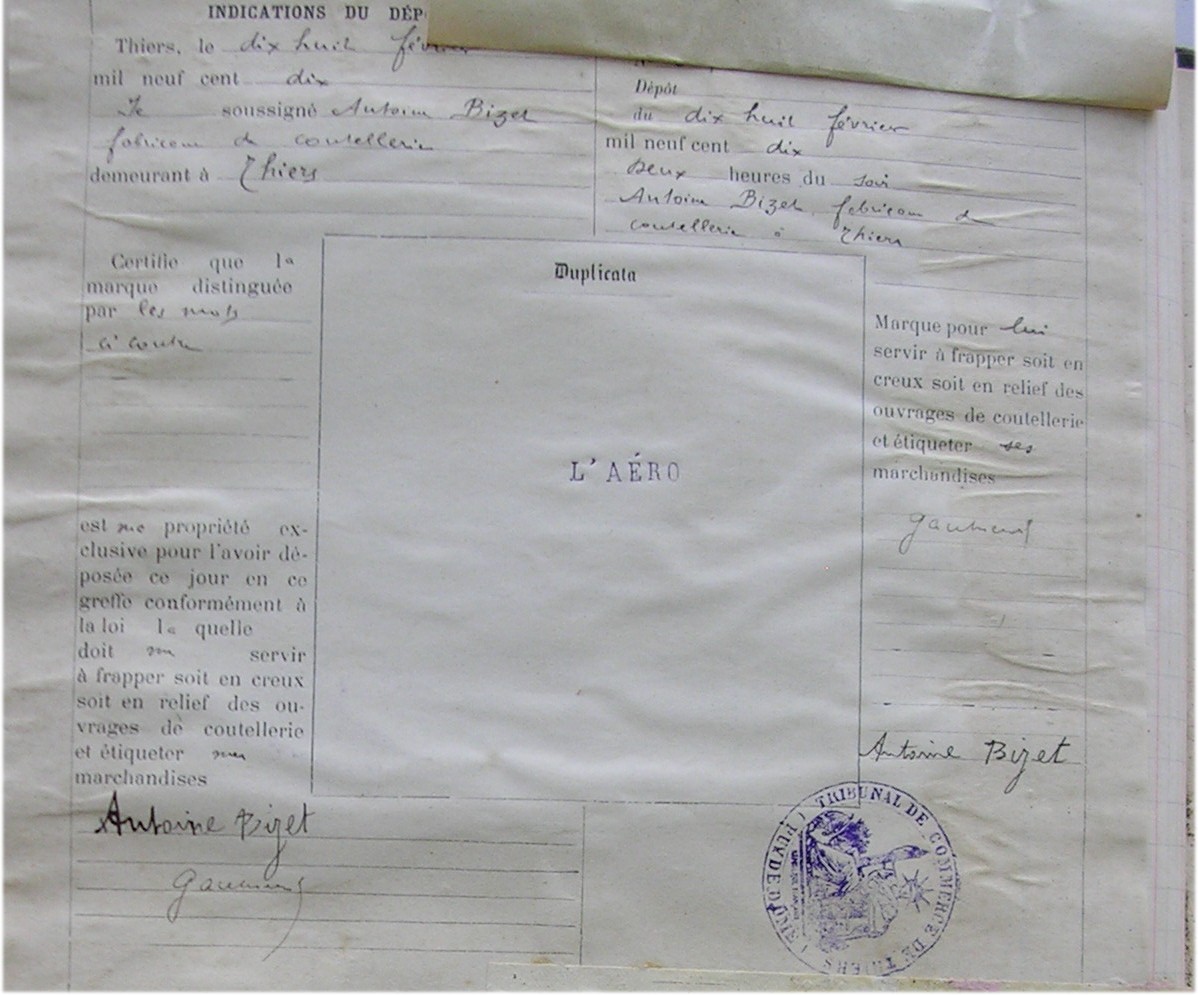 INDICATIONS DU DÉP
Thiers, le dix huit février
mil neuf cent dix
Je soussigné Antoine Bizet
fabricant de coutellerie
demeurant à Thiers
Dépôt
du dix huit février
mil neuf cent dix
Deux heures du soir
Antoine Bizet fabricant de
coutellerie à Thiers
Certifie que la
marque distinguée
par les mots
ci contre
est ma propriété ex-
clusive pour l'avoir dé-
posée ce jour en ce
greffe conformément à
la loi la quelle
doit me servir
à frapper soit en creux
soit en relief des ou-
vrages de coutellerie
et étiqueter mes
marchandises
Antoine Bizet
Duplicata
L'AÉRO
Marque pour lui
servir à frapper soit en
creux soit en relief des
ouvrages de coutellerie
et étiqueter ses
marchandises
Antoine Bizet
TRIBUNAL DE COMMERCE DE THIERS (PUY DE DOME)